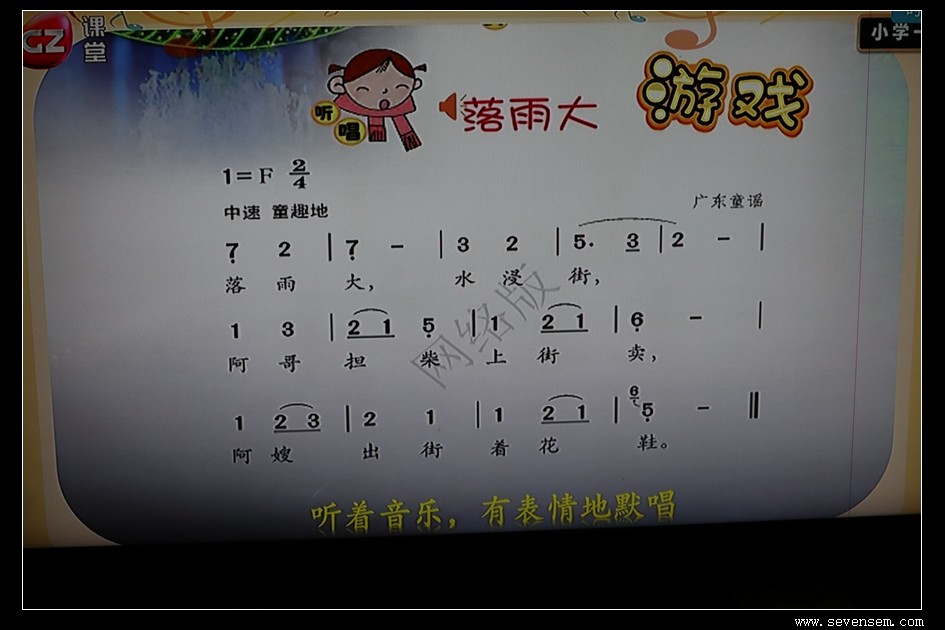 GZ 课堂
小学一
听唱 落雨大 游戏
1=F 2/4
中速 童趣地
广东童谣
7 2 | 7 - | 3 2 | 5. 3 | 2 - |
落 雨 大， 水 浸 街，
1 3 | 2 1 5 | 1 2 1 | 6 - |
阿 哥 担 柴 上 街 卖，
1 2 3 | 2 1 | 1 2 1 | 6 5 - ‖
阿 嫂 出 街 着 花 鞋。
网络版
听着音乐，有表情地默唱
www.sevensem.com